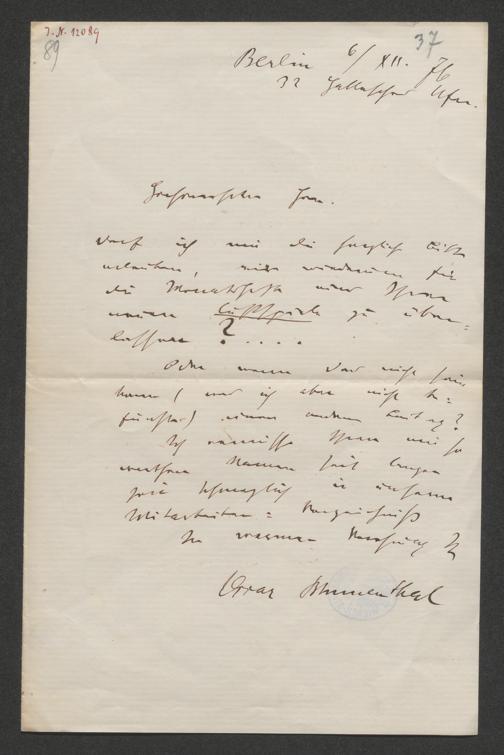 J. N. 12089
89
37
Berlin 6/XII. 76
32 Hallesches Ufer.
Darf ich mir die herzlich Bitte
erlauben, mir wiederum für
die Monatshefte eines Ihrer
neuen Lustspiele zu über-
lassen? ....
Oder wenn das nicht sein
kann (was ich aber nicht be-
fürchte) einen andern Beitrag?
Ich vermisse Ihren mir so
werthen Namen seit langer
Zeit schmerzlich in unserm
Mitarbeiter-Verzeichniß
In warmer Verehrung Ihr
Oscar Blumenthal